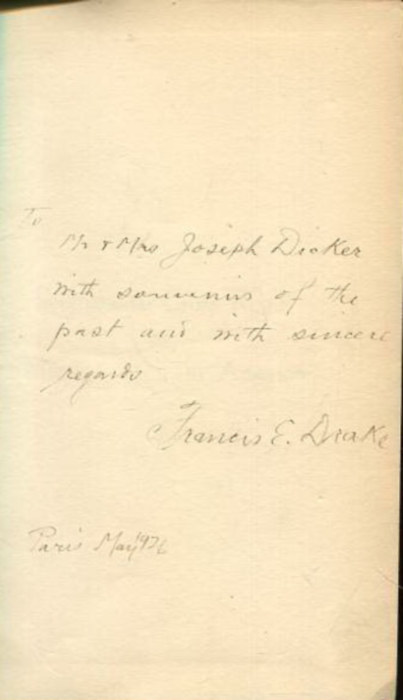 To
Mr & Mrs Joseph Dicker
with souvenirs of the
past and with sincere
regards
Francis E. Drake
Paris May